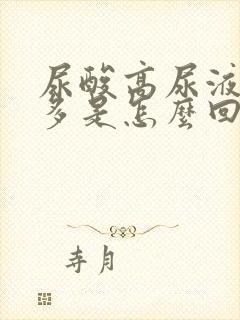 尿酸高尿液
多是怎麼回
寺月